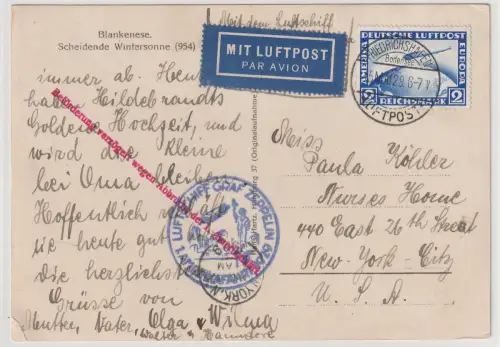 Blankenese.
Scheidende Wintersonne (954)
Mit dem Luftschiff
MIT LUFTPOST
PAR AVION
DEUTSCHE LUFTPOST
AMERIKA
EUROPA
2 REICHSMARK 2
FRIEDRICHSHAFEN
Bodensee
LUFTPOST
immer ab. Heute
haben Hildebrandts
Goldene Hochzeit, und
wird die kleine
bei Oma bleiben
Hoffentlich
sie heute gut
die herzlichsten
Grüsse von
Mutter, Vater, Olga & Wilma
Walter & Hannelore
Beförderung verzögert wegen Abbruchs der 1. Amerikafahrt
LUFTSCHIFF GRAF ZEPPELIN
AMERIKAFAHRT
Miss
Paula Köhler
Nurses Home
440 East 26th Street
New-York-City
U. S. A.